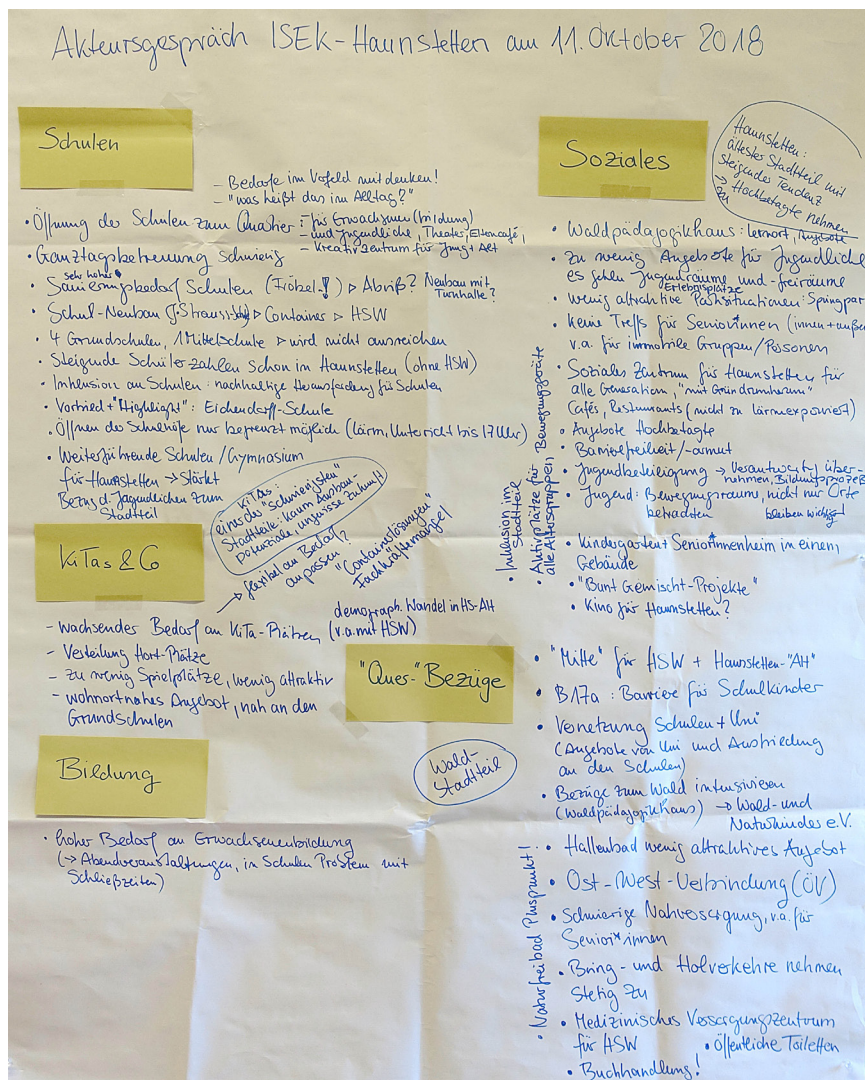 Akteursgespräch ISEK-Haunstetten am 11. Oktober 2018
Schulen
- Bedarfe im Vorfeld mit denken!
- "was heißt das im Alltag?"
• Öffnung der Schulen zum Quartier:
- für Erwachsene (bildung)
- und Jugendliche, Theater, Elterncafé,
- Kreativzentrum für Jung + Alt
• Ganztagsbetreuung schwierig
sehr hoher
• Sanierungsbedarf Schulen (Fröbel-!) ▷ Abriß? Neubau mit
Turnhalle?
• Schul-Neubau (J. Strauss) ▷ Container ▷ HSW
• 4 Grundschulen, 1 Mittelschule ▷ wird nicht ausreichen
• Steigende Schülerzahlen schon im Haunstetten (ohne HSW)
• Inklusion an Schulen: nachhaltige Herausforderung für Schulen
• Vorbild + "Highlight": Eichendorff-Schule
• Öffnen der Schulhöfe nur begrenzt möglich (Lärm, Unterricht bis 17 Uhr)
• Weiterführende Schulen / Gymnasium
für Haunstetten → Stärkt
Bezug d. Jugendlichen zum
Stadtteil
KiTas:
eines der "schwierigsten"
Stadtteile: kaum Ausbau-
potenziale, ungewisse Zukunft
KiTas & Co
→ flexibel an Bedarf
anpassen?
"Containerlösungen"
Fachkräftemangel
demograph. Wandel in HS-Alt
(v.a. mit HSW)
- wachsender Bedarf an KiTa-Plätzen
- Verteilung Hort-Plätze
- zu wenig Spielplätze, wenig attraktiv
- wohnortnahes Angebot, nah an den
Grundschulen
Bildung
• hoher Bedarf an Erwachsenenbildung
(→ Abendveranstaltungen, in Schulen Problem mit
Schließzeiten)
Soziales
Haunstetten:
ältester Stadtteil mit
steigender Tendenz
→ Hochbetagte nehmen
zu
• Waldpädagogikhaus: Lernort, Angebote
• Zu wenig Angebote für Jugendliche
es fehlen Jugendräume und -freiräume
Erlebnisplätze
• wenig attraktive Parksituationen: Springpar
• Keine Treffs für Senior*innen (innen + außen
v.a. für immobile Gruppen/Personen
• Soziales Zentrum für Haunstetten für
alle Generation, "mit Grün drumherum"
Cafés, Restaurants (nicht zu lärmexponiert)
• Angebote Hochbetagte
• Barrierefreiheit/-armut
• Jugendbeteiligung → Verantwortg über-
nehmen, Bildungsprozeß
• Jugend: Bewegungsraum, nicht nur Orte
betrachten
bleiben wichtig!
• Inklusion im
Stadtteil
• Aktivplätze für Bewegungsgeräte
alle Altersgruppen
• Kindergarten + Senior*innenheim in einem
Gebäude
• "Bunt Gemischt-Projekte"
• Kino für Haunstetten?
"Quer-" Bezüge
Wald-
Stadtteil
• "Mitte" für HSW + Haunstetten-"Alt"
• B17a: Barriere für Schulkinder
• Vernetzung Schulen + Uni
(Angebote von Uni und Ausbildung
an den Schulen)
• Bezüge zum Wald intensivieren
(Waldpädagogikhaus) → Wald- und
Naturkinder e.V.
• Hallenbad wenig attraktives Angebot
• Naturfreibad Pluspunkt!
• Ost-West-Verbindung (ÖV)
• Schwierige Nahversorgung, v.a. für
Senior*innen
• Bring- und Holverkehre nehmen
stetig zu
• Medizinisches Versorgungszentrum
für HSW
• Öffentliche Toiletten
• Buchhandlung!